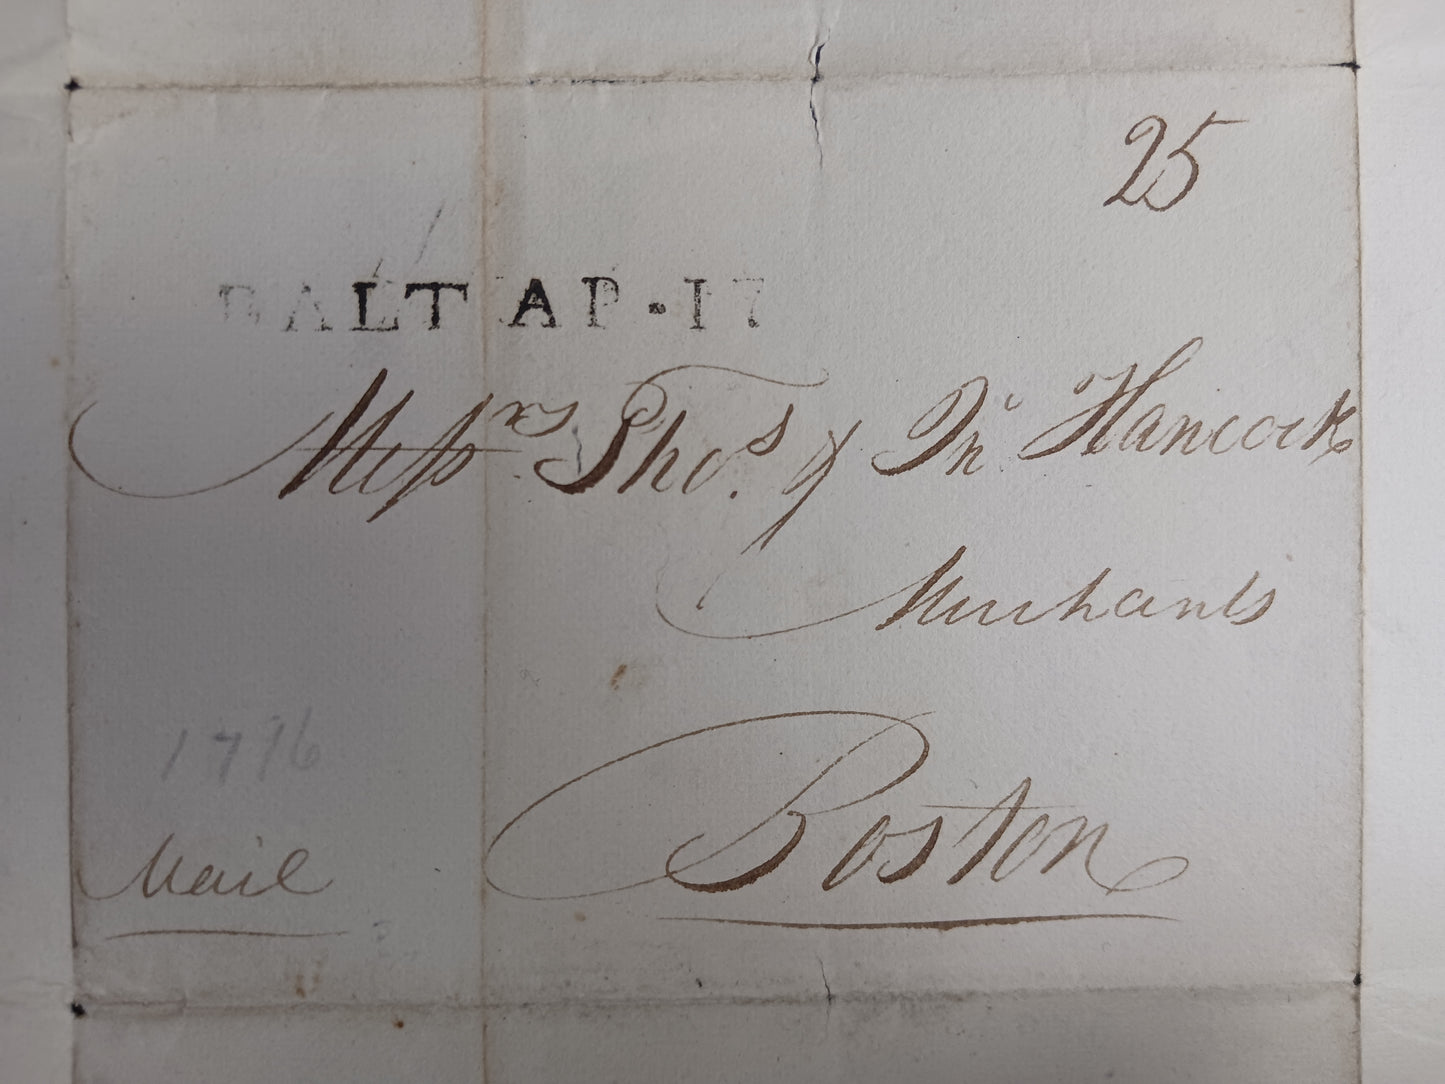 25
BALT AP·17
Messrs Thos. & Jn Hancock
Merchants
Boston
1796
Mail